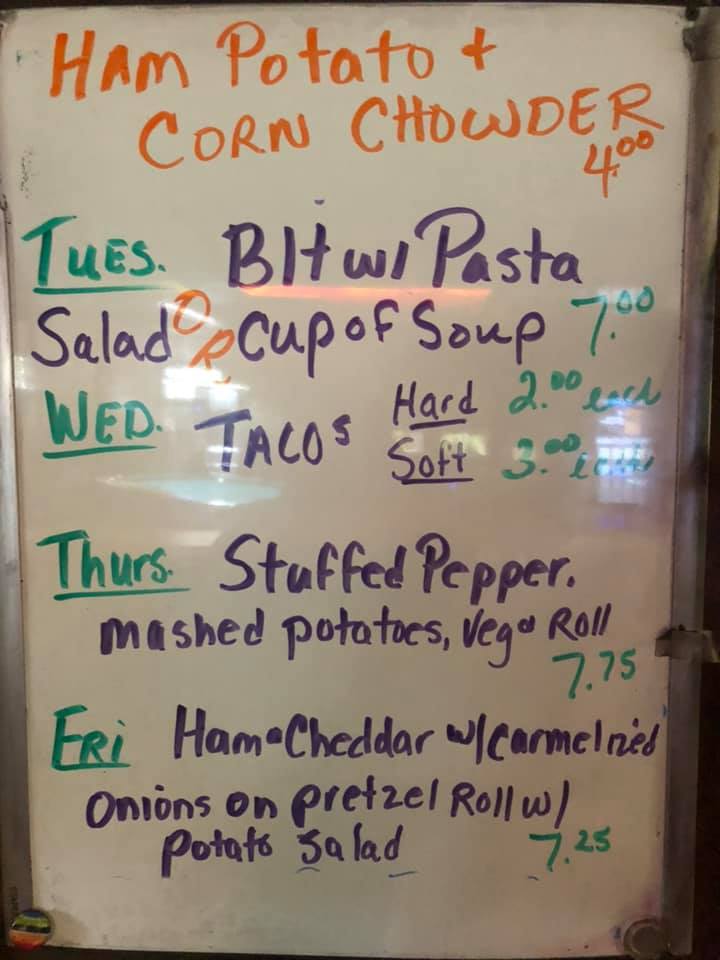 Ham Potato +
CORN CHOWDER
4.00
TUES. Blt w/ Pasta
Salad OR Cup of Soup 7.00
WED. TACOS Hard 2.00 each
Soft 3.00 each
Thurs. Stuffed Pepper.
mashed potatoes, veg & Roll
7.75
FRi Ham & Cheddar w/ Carmelnied
Onions on pretzel Roll w/
potato Salad 7.25